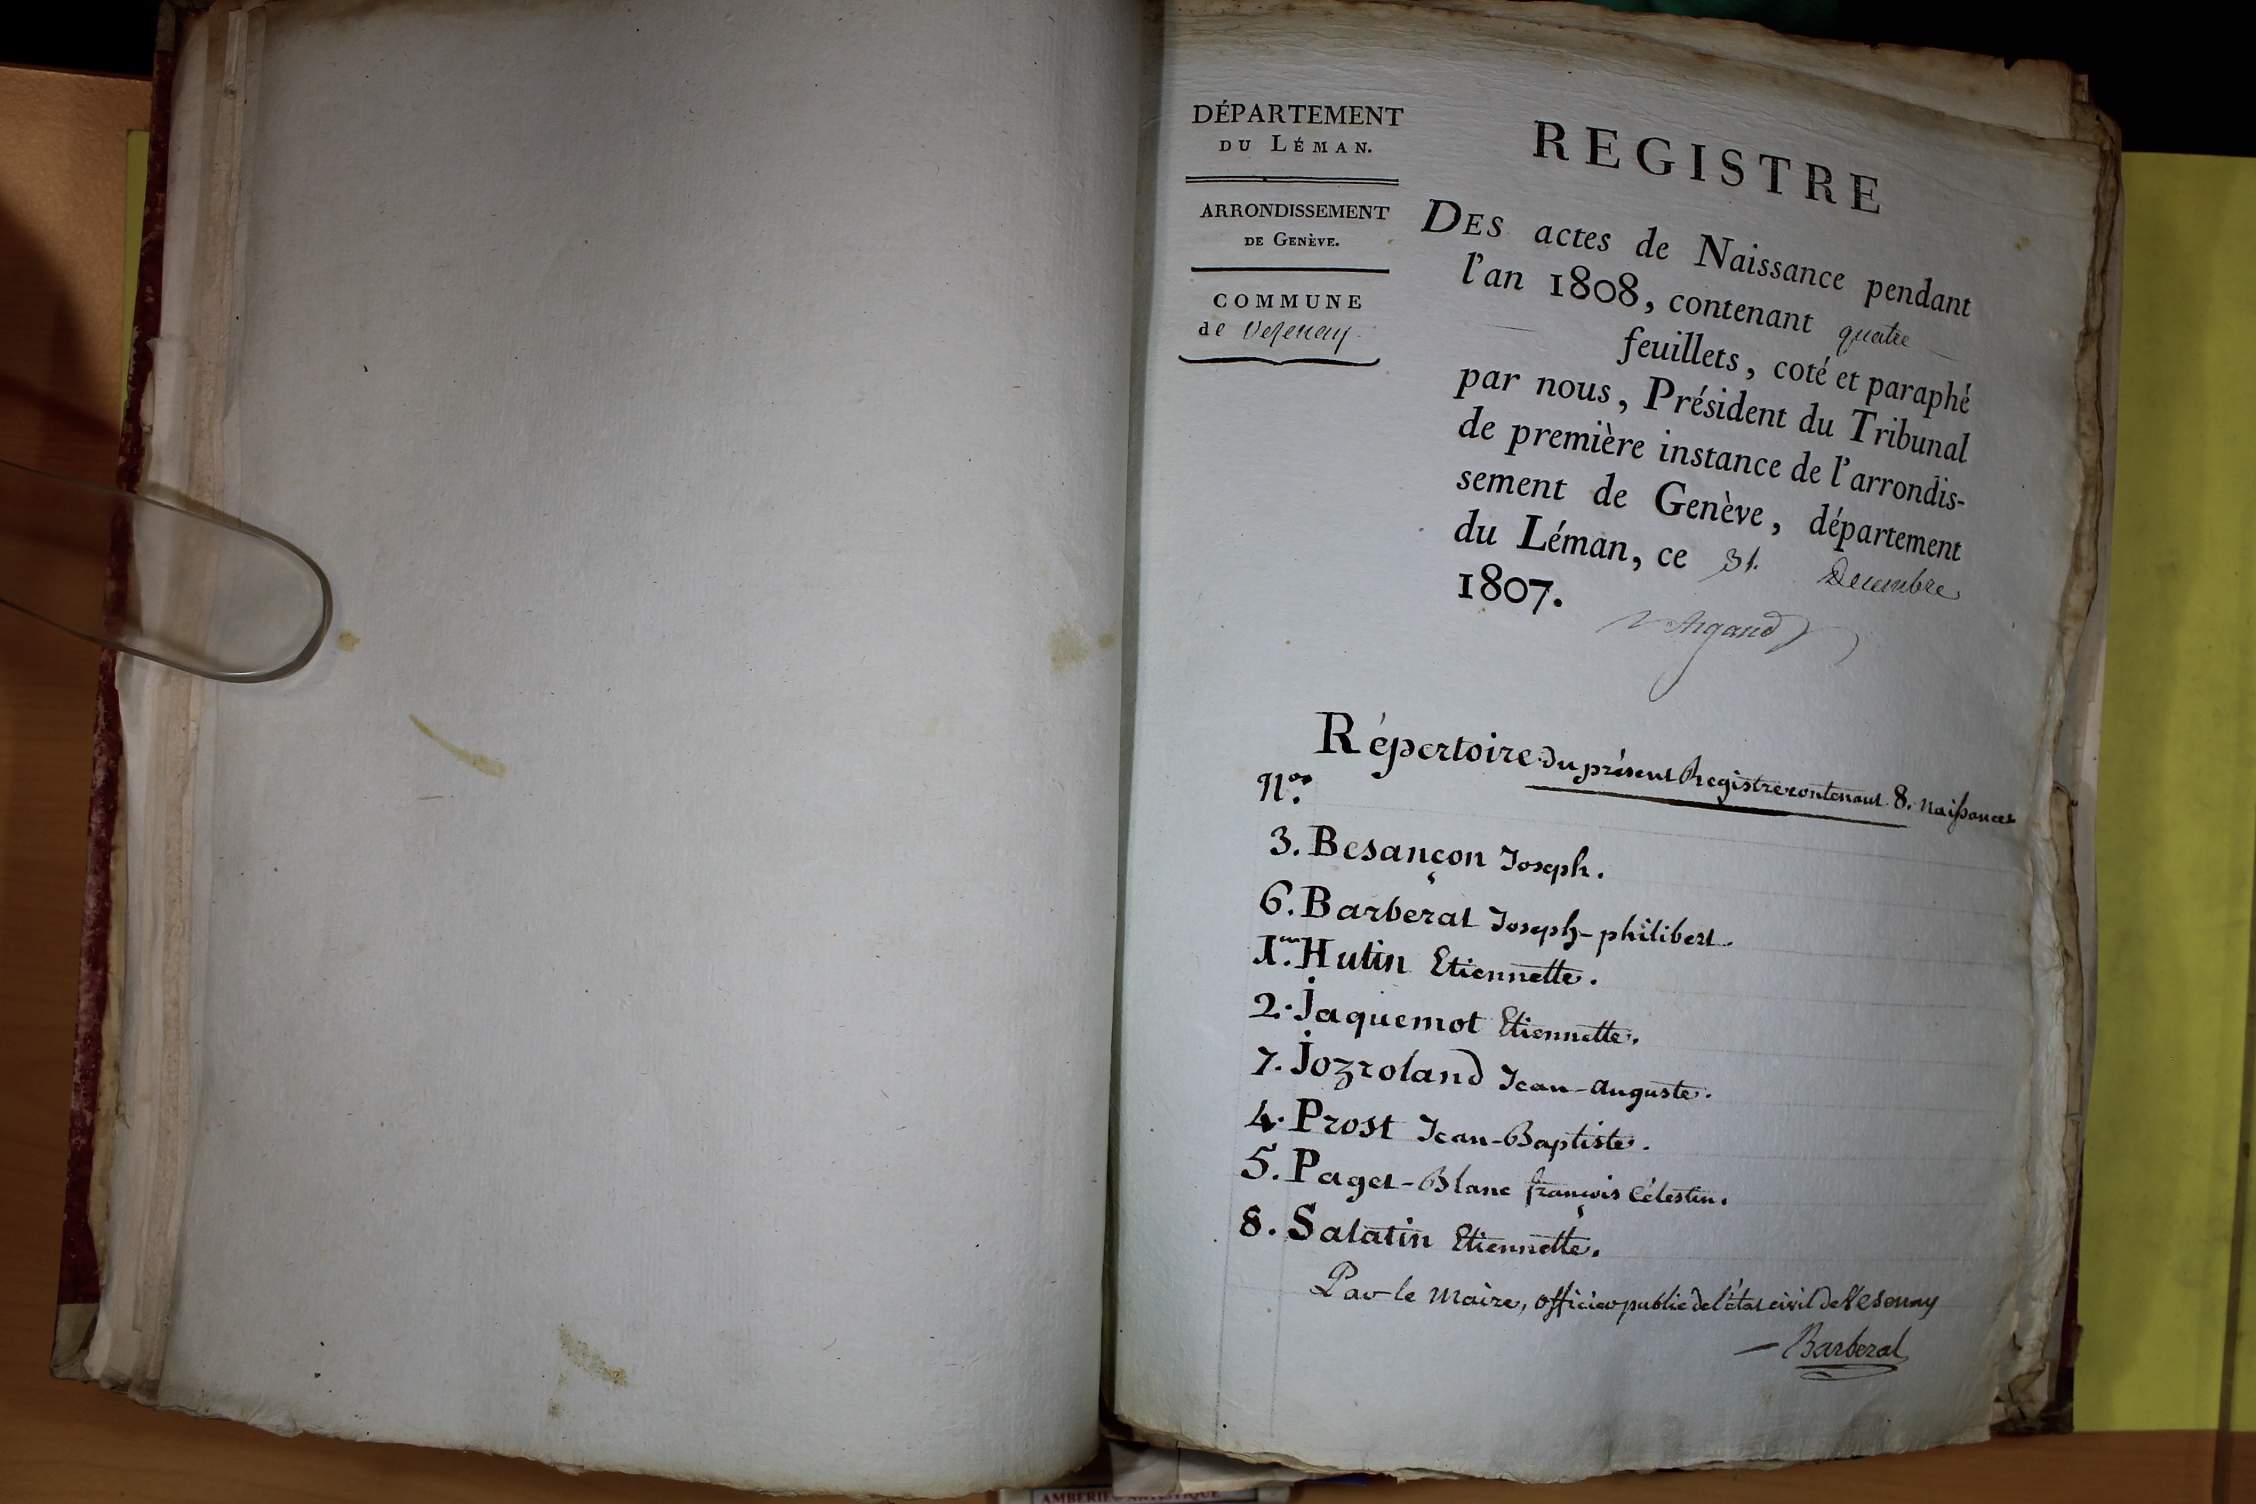 DÉPARTEMENT
DU LÉMAN.
ARRONDISSEMENT
DE GENÈVE.
COMMUNE
de Vesenay
REGISTRE
DES actes de Naissance pendant
l'an 1808, contenant quatre
feuillets, coté et paraphé
par nous, Président du Tribunal
de première instance de l'arrondis-
sement de Genève, département
du Léman, ce 31. Decembre
1807.
Argand
Répertoire du présent Registre contenant 8. naissances
Nos.
3. Besançon Joseph.
6. Barberat Joseph-philibert.
1er. Hutin Etiennette.
2. jaquemot Etiennette.
7. jozroland Jean-auguste.
4. Prost Jean-Baptiste.
5. Paget-Blanc françois Célestin.
8. Salatin Etiennette.
Par le Maire, officier public de l'état civil de Vesenay
Barberat
AMBERIEU ARTISTIQUE